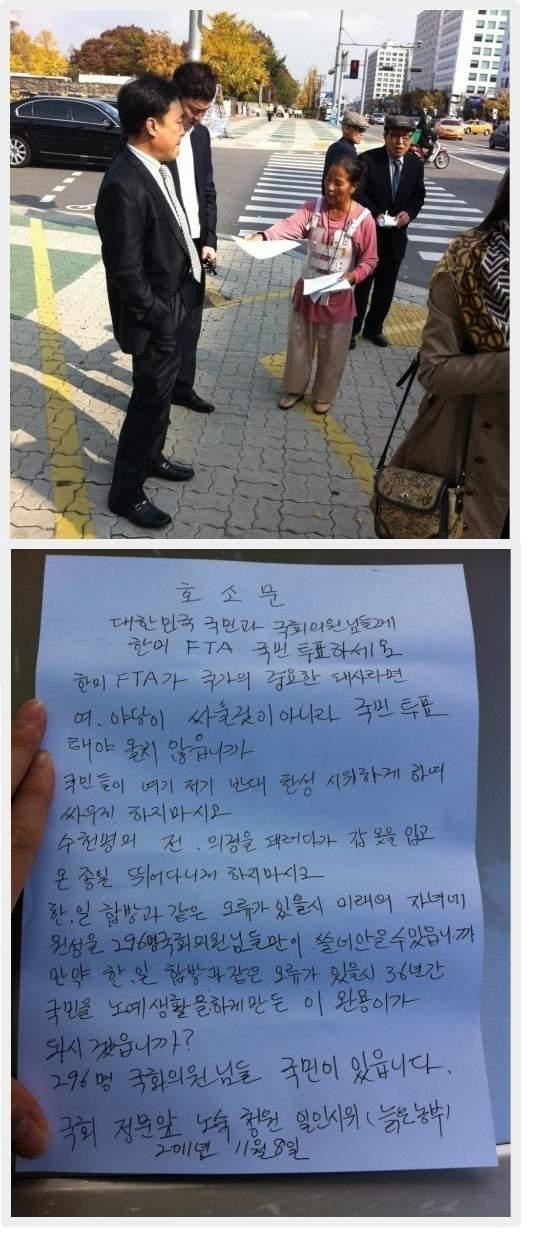 호 소 문
대한민국 국민과 국회의원님들게
한미 FTA 국민 투표하세요
한미 FTA가 국가의 중요한 대사라면
여. 야당이 싸울것이아니라 국민 투표
해야 옳지 않읍니까
국민들이 여기 저기 반대 찬성 시위하게 하며
싸우게 하지마시오
수천명의 전. 의경을 데려다가 갑옷을 입고
온 종일 뛰어다니게 하지마시고
한.일 합방과 같은 오류가 있을시 미래의 자녀네
원성을 296명국회의원님들만이 쓸어안을수있읍니까
만약 한.일 합방과같은 오류가 있을시 36년간
국민을 노예생활을하게만든 이 완용이가
되시겠읍니까?
296명 국회의원님들 국민이 있읍니다.
국회 정문앞 노숙 청원 일인시위 (늙은농부)
2011년 11월 8일